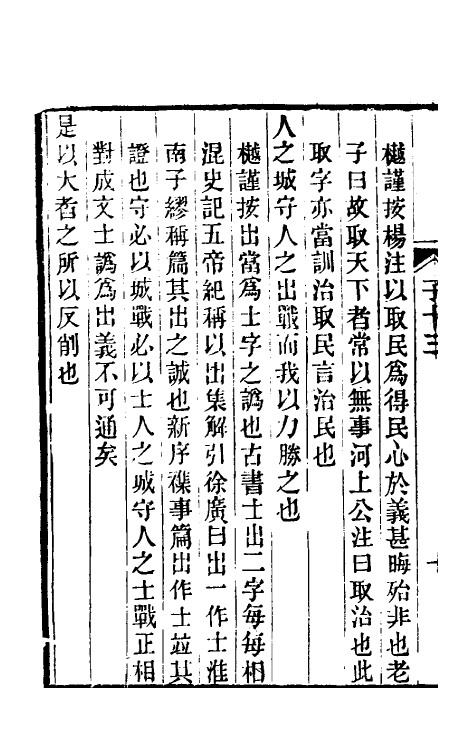 子十三
樾謹按楊注以取民爲得民心於義甚晦殆非也老
子曰故取天下者常以無事河上公注曰取治也此
取字亦當訓治取民言治民也
人之城守人之出戰而我以力勝之也
樾謹按出當爲士字之譌也古書士出二字每每相
混史記五帝紀稱以出集解引徐廣曰出一作士淮
南子繆稱篇其出之誠也新序襍事篇出作士竝其
證也守必以城戰必以士人之城守人之士戰正相
對成文士譌爲出義不可通矣
是以大者之所以反削也